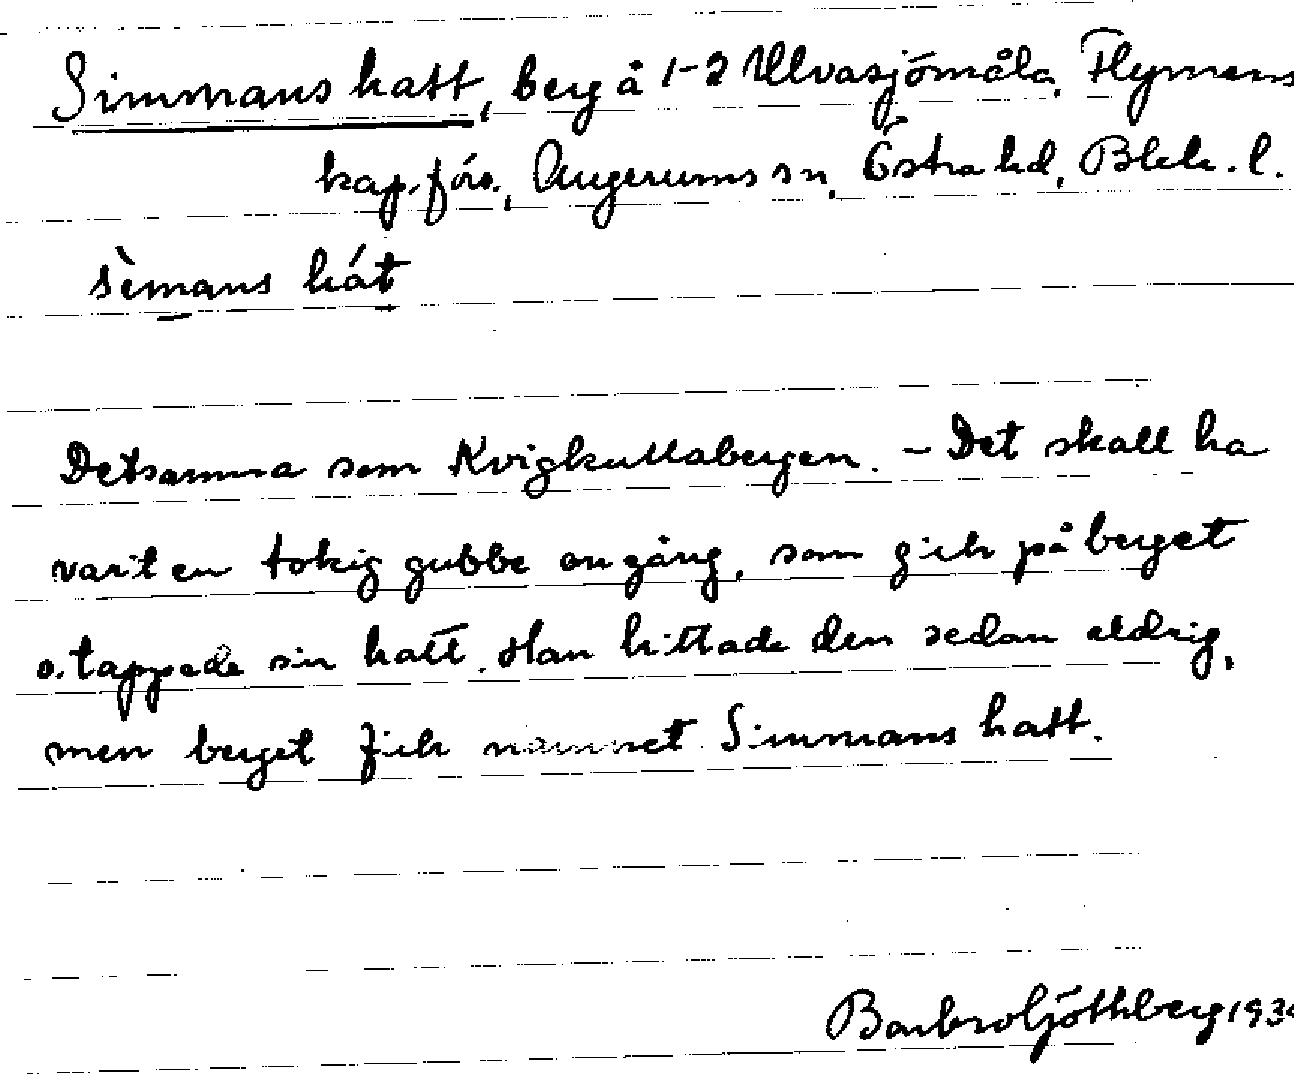 Simmans hatt, berg å 1-2 Ulvasjömåla, Flymens
kap.förs., Augerums sn, Östra hd, Blek. l.
sèmans hát
Detsamma som Kvigkullabergen. - Det skall ha
varit en tokig gubbe en gång, som gick på berget
o. tappade sin hatt. Han hittade den sedan aldrig,
men berget fick namnet Simmans hatt.
Barbro Göthberg